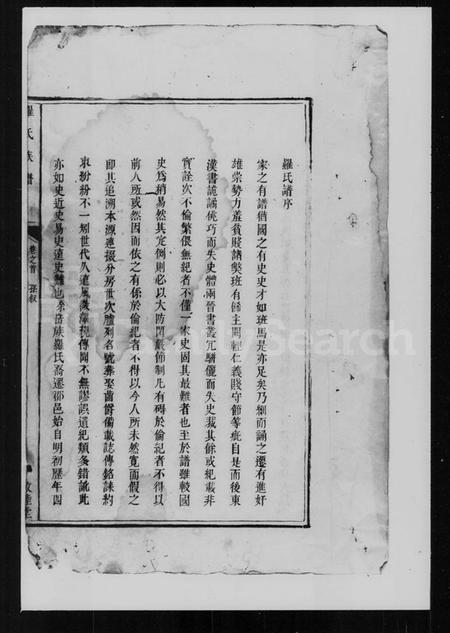 羅氏譜序
家之有譜猶國之有史史才如班馬是亦足矣乃剏而論之遷有進奸
雄崇勢力羞貧賤諸獘班有飾主闕輕仁義賤守節等疵自是而後東
漢書詭譎佻巧而失史體兩晉書叢冗駢儷而失史裁其餘或紀載非
實詮次不倫繁偎無紀者不僅一宋史固其最雜者也至於譜雖較國
史為稍易然其定例則必以大防閑嚴節制凡有碍於倫紀者不得以
前人所或然因而依之有係於倫紀者不得以今人所未然寬而假之
即其追溯本源連掇分房世次體列名號葬娶齒爵備載誌傳銘誄約
束紛紛不一剏世代久遠風微傳聞不無謬誤遺紀類多錯訛此
亦如史近史易史遠史難也 族羅氏喬遷邵邑始自明初歷年四
羅氏族譜
卷之首 孫叙
敦睦堂